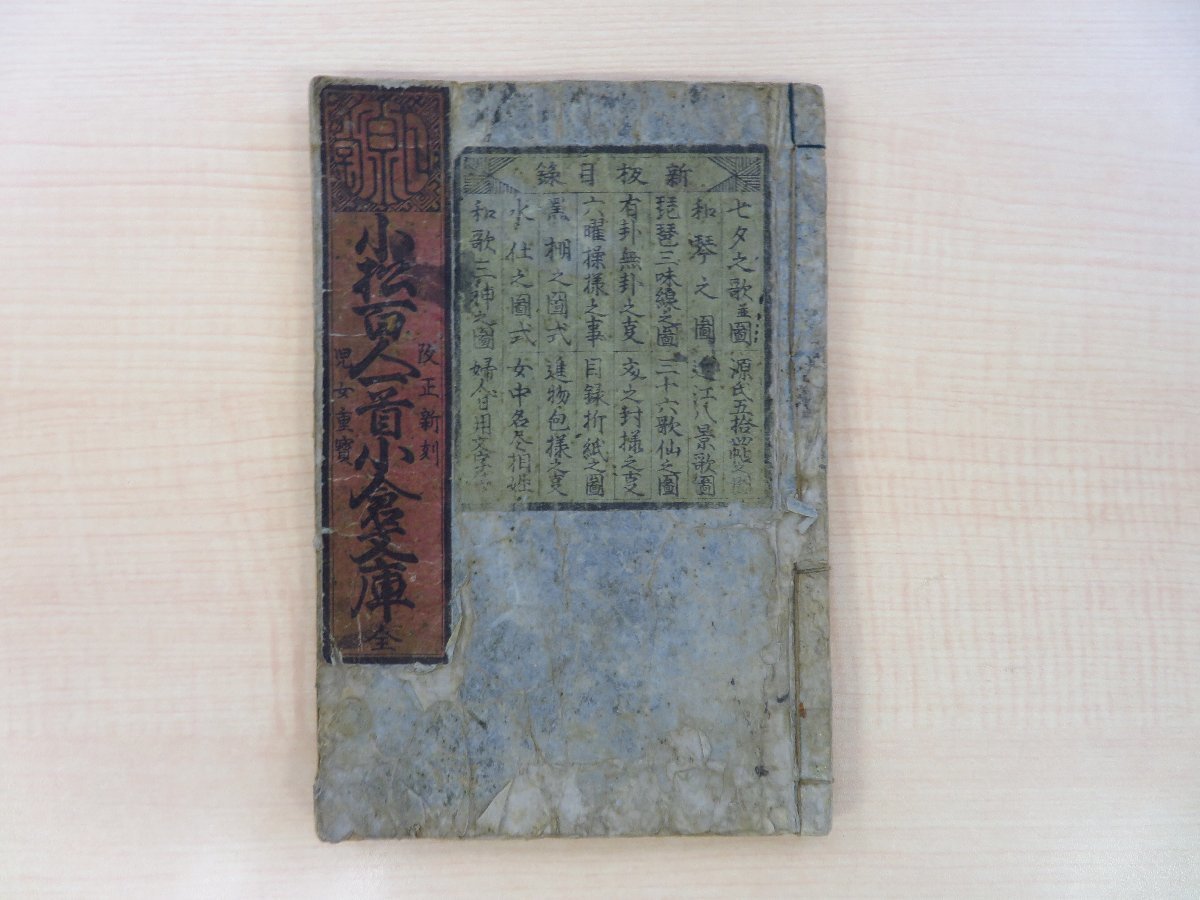 新板目録
七夕之歌並圖
源氏五拾四帖之圖
和琴之圖
近江八景歌圖
琵琶三味線之圖
三十六歌仙之圖
有卦無卦之㕝
文之封様之㕝
六曜操様之事
目録折紙之圖
黒棚之圖式
進物包様之㕝
水仕之圖式
女中名尽相性
和歌三神之圖
婦人日用文字
改正新刻
小松百人一首小倉文庫 全
児女重寶